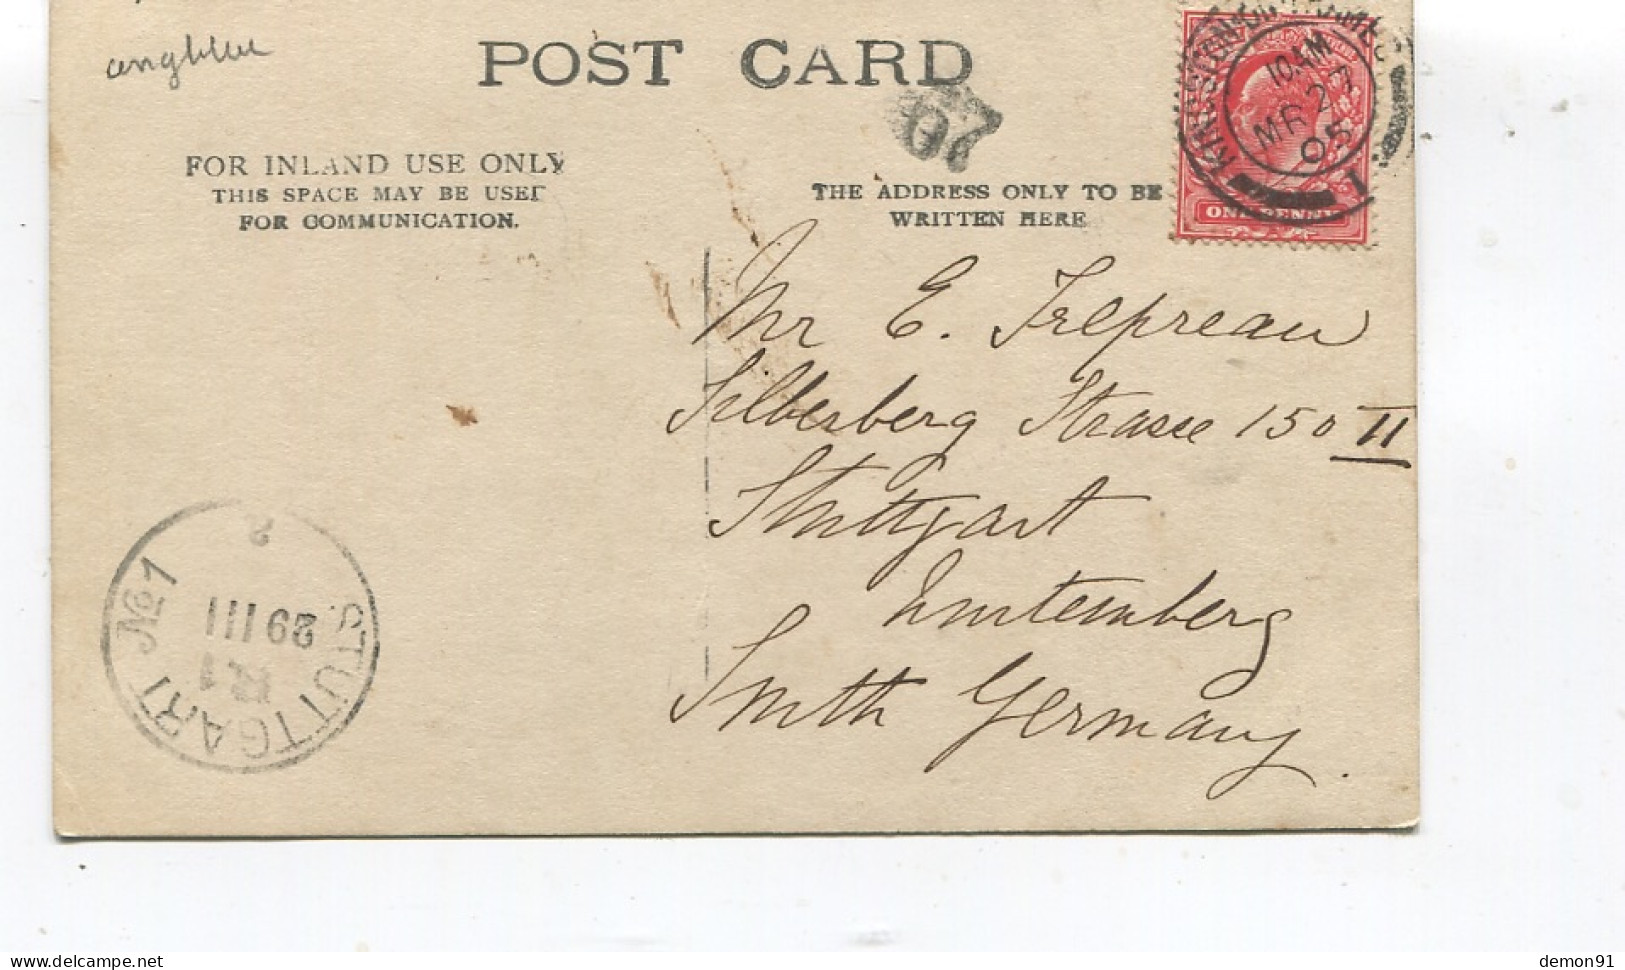 POST CARD
FOR INLAND USE ONLY
THIS SPACE MAY BE USED
FOR COMMUNICATION.
THE ADDRESS ONLY TO BE
WRITTEN HERE
KINGSTON-ON-THAMES
10. AM
MR 27
05
1
ONE PENNY
Mr E. Trepreau
Silberberg Strasse 150 II
Stuttgart
Wurtemberg
South Germany.
STUTTGART No 1
29 III
2
Delcampe.net
demon91